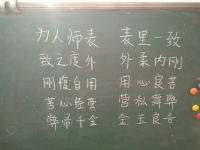 为人师表 表里一致
致之度外 外柔内刚
刚愎自用 用心良苦
苦心经营 营私舞弊
弊帚千金 金玉良言